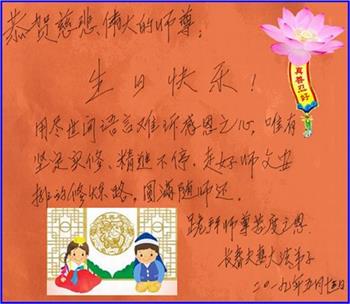 恭贺慈悲、伟大的师尊:
生日快乐!
用尽世间语言难诉感恩之心,唯有
坚定实修、精進不停、走好师父安
排的修炼路,圆满随师还。
跪拜师尊苦度之恩
长春大专大法弟子
二〇一九年五月十三日
真善忍好